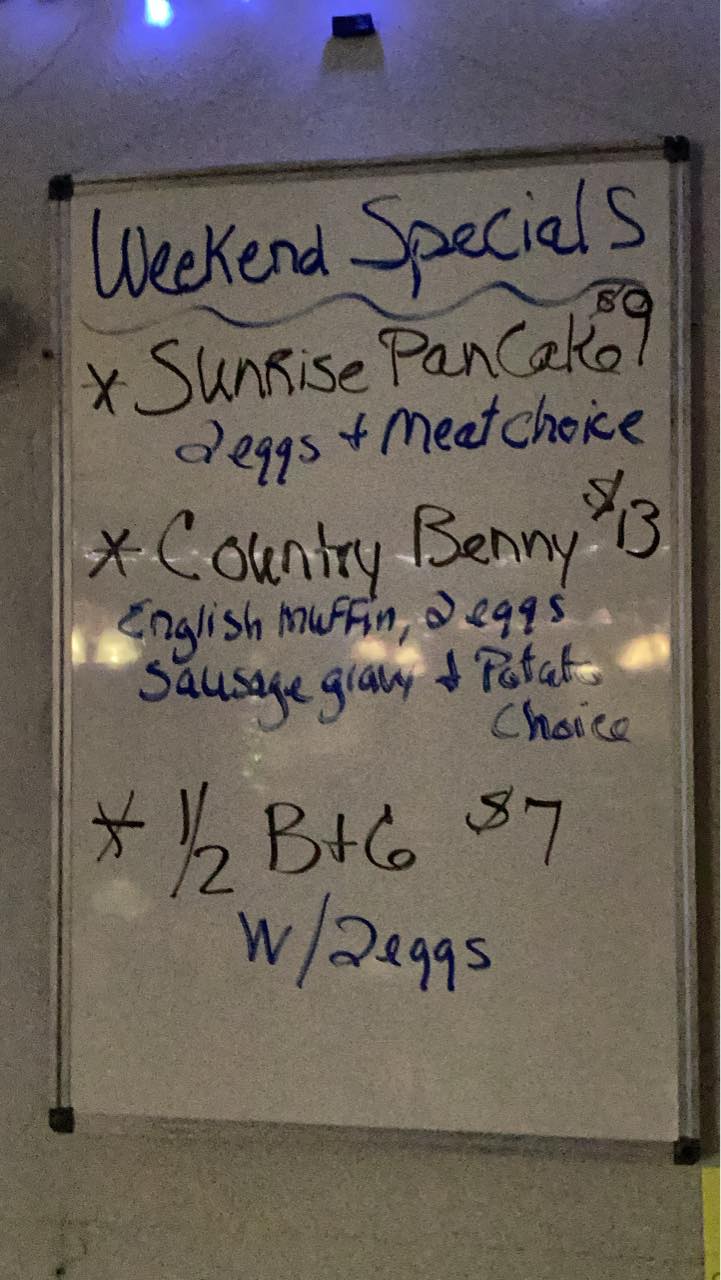 Weekend Specials
* Sunrise Pancake $9
2 eggs + Meat choice
* Country Benny $13
English Muffin, 2 eggs
Sausage gravy + Potato
Choice
* 1/2 B+G $7
W/2eggs